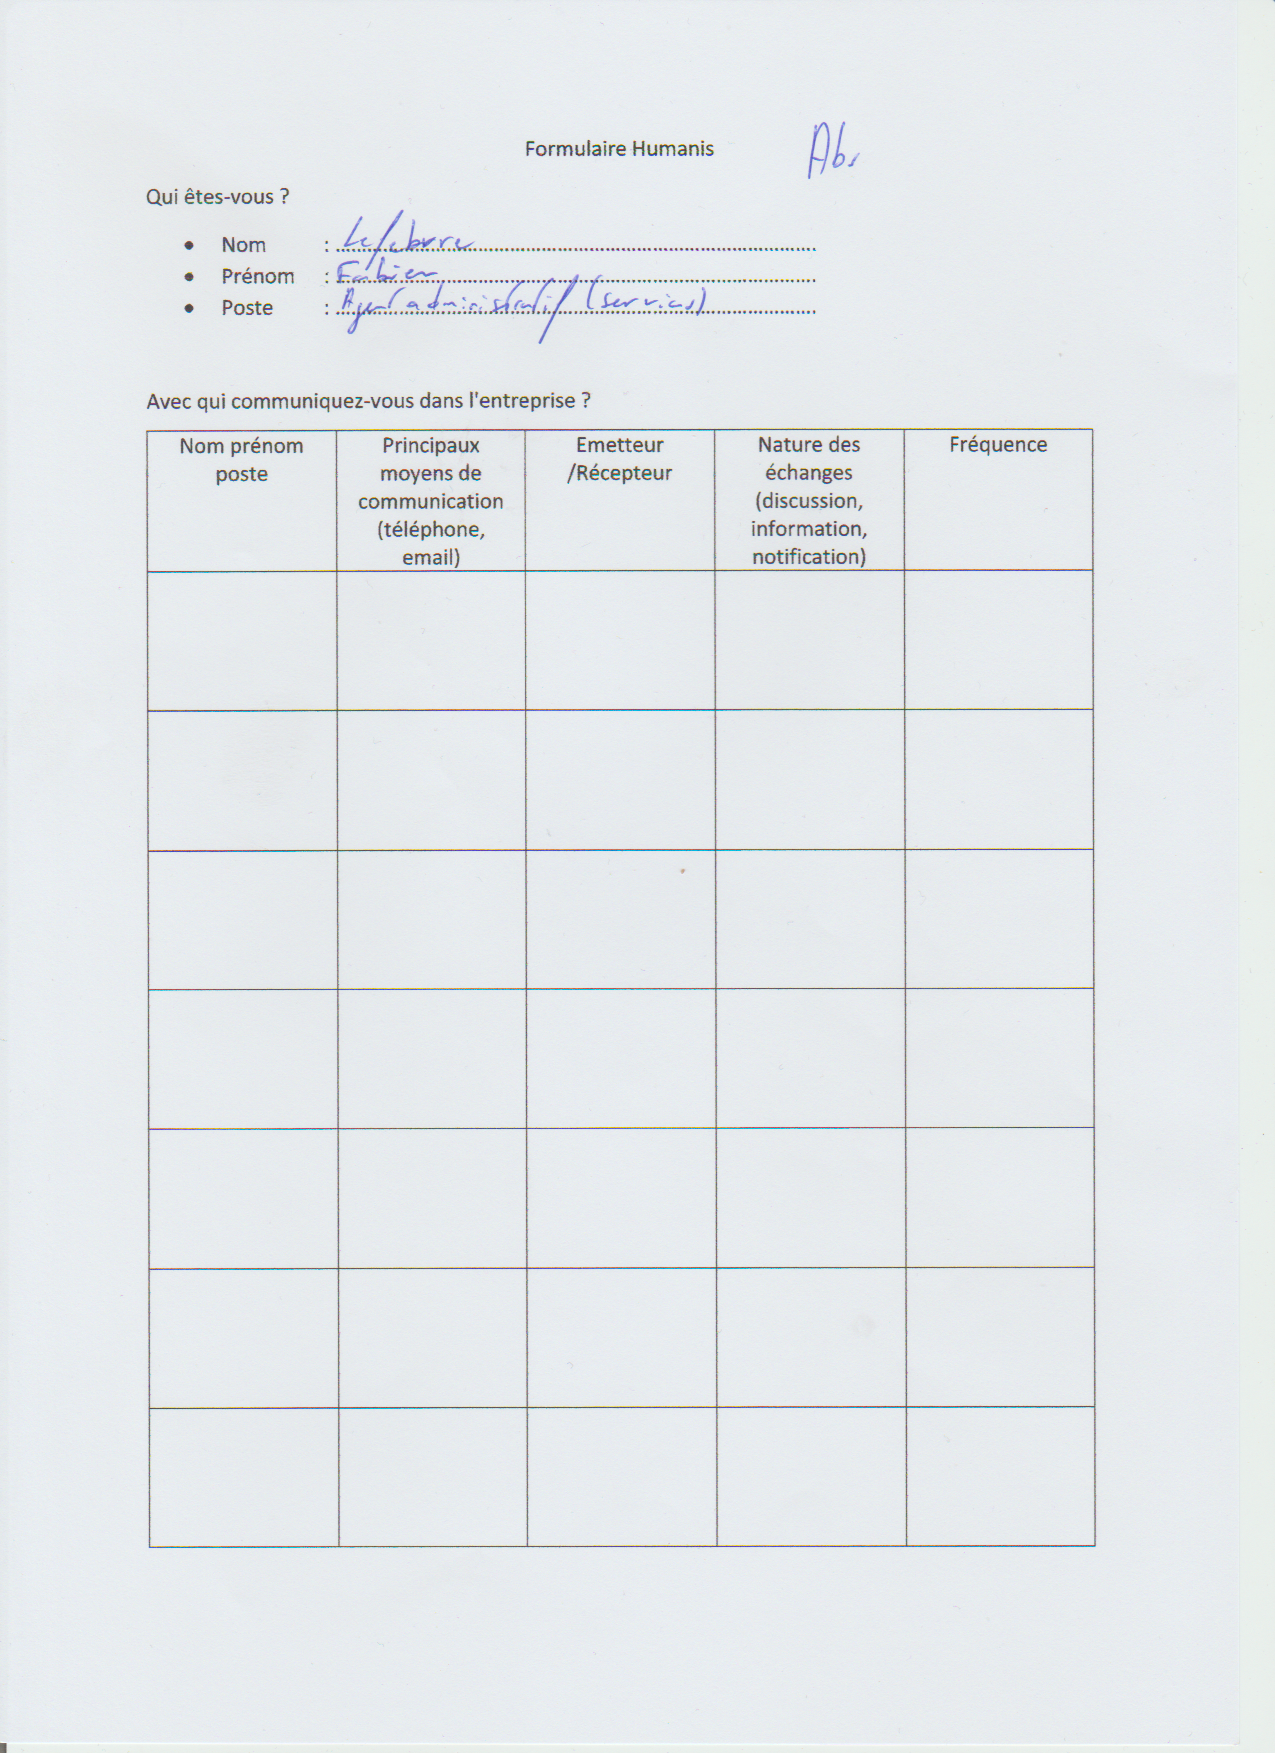 Formulaire Humanis
Abs
Qui êtes-vous ?
• Nom : Lefebvre
• Prénom : Fabien
• Poste : Agent administratif (services)
Avec qui communiquez-vous dans l'entreprise ?
Nom prénom
poste
Principaux
moyens de
communication
(téléphone,
email)
Emetteur
/Récepteur
Nature des
échanges
(discussion,
information,
notification)
Fréquence